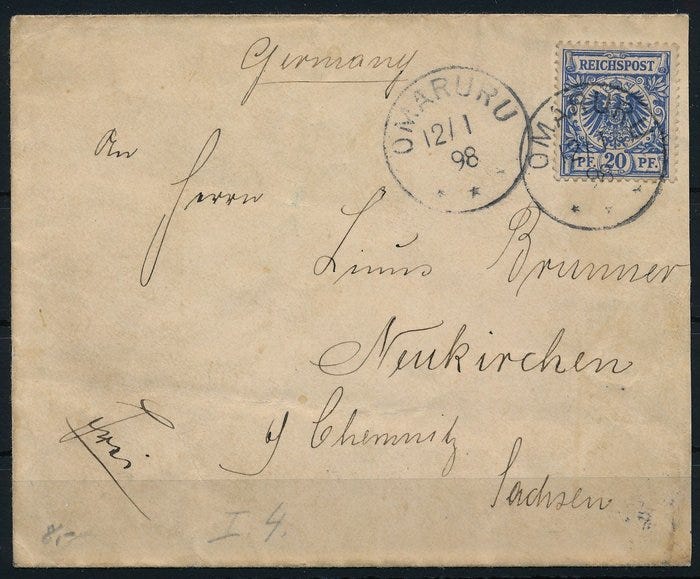 Germany
REICHSPOST
PF. 20 PF.
OMARURU
12/1
98
OMARURU
12/1
98
An
Herrn
Linus Brunner
Neukirchen
Chemnitz
Sachsen
Frei
8,-
I 4.